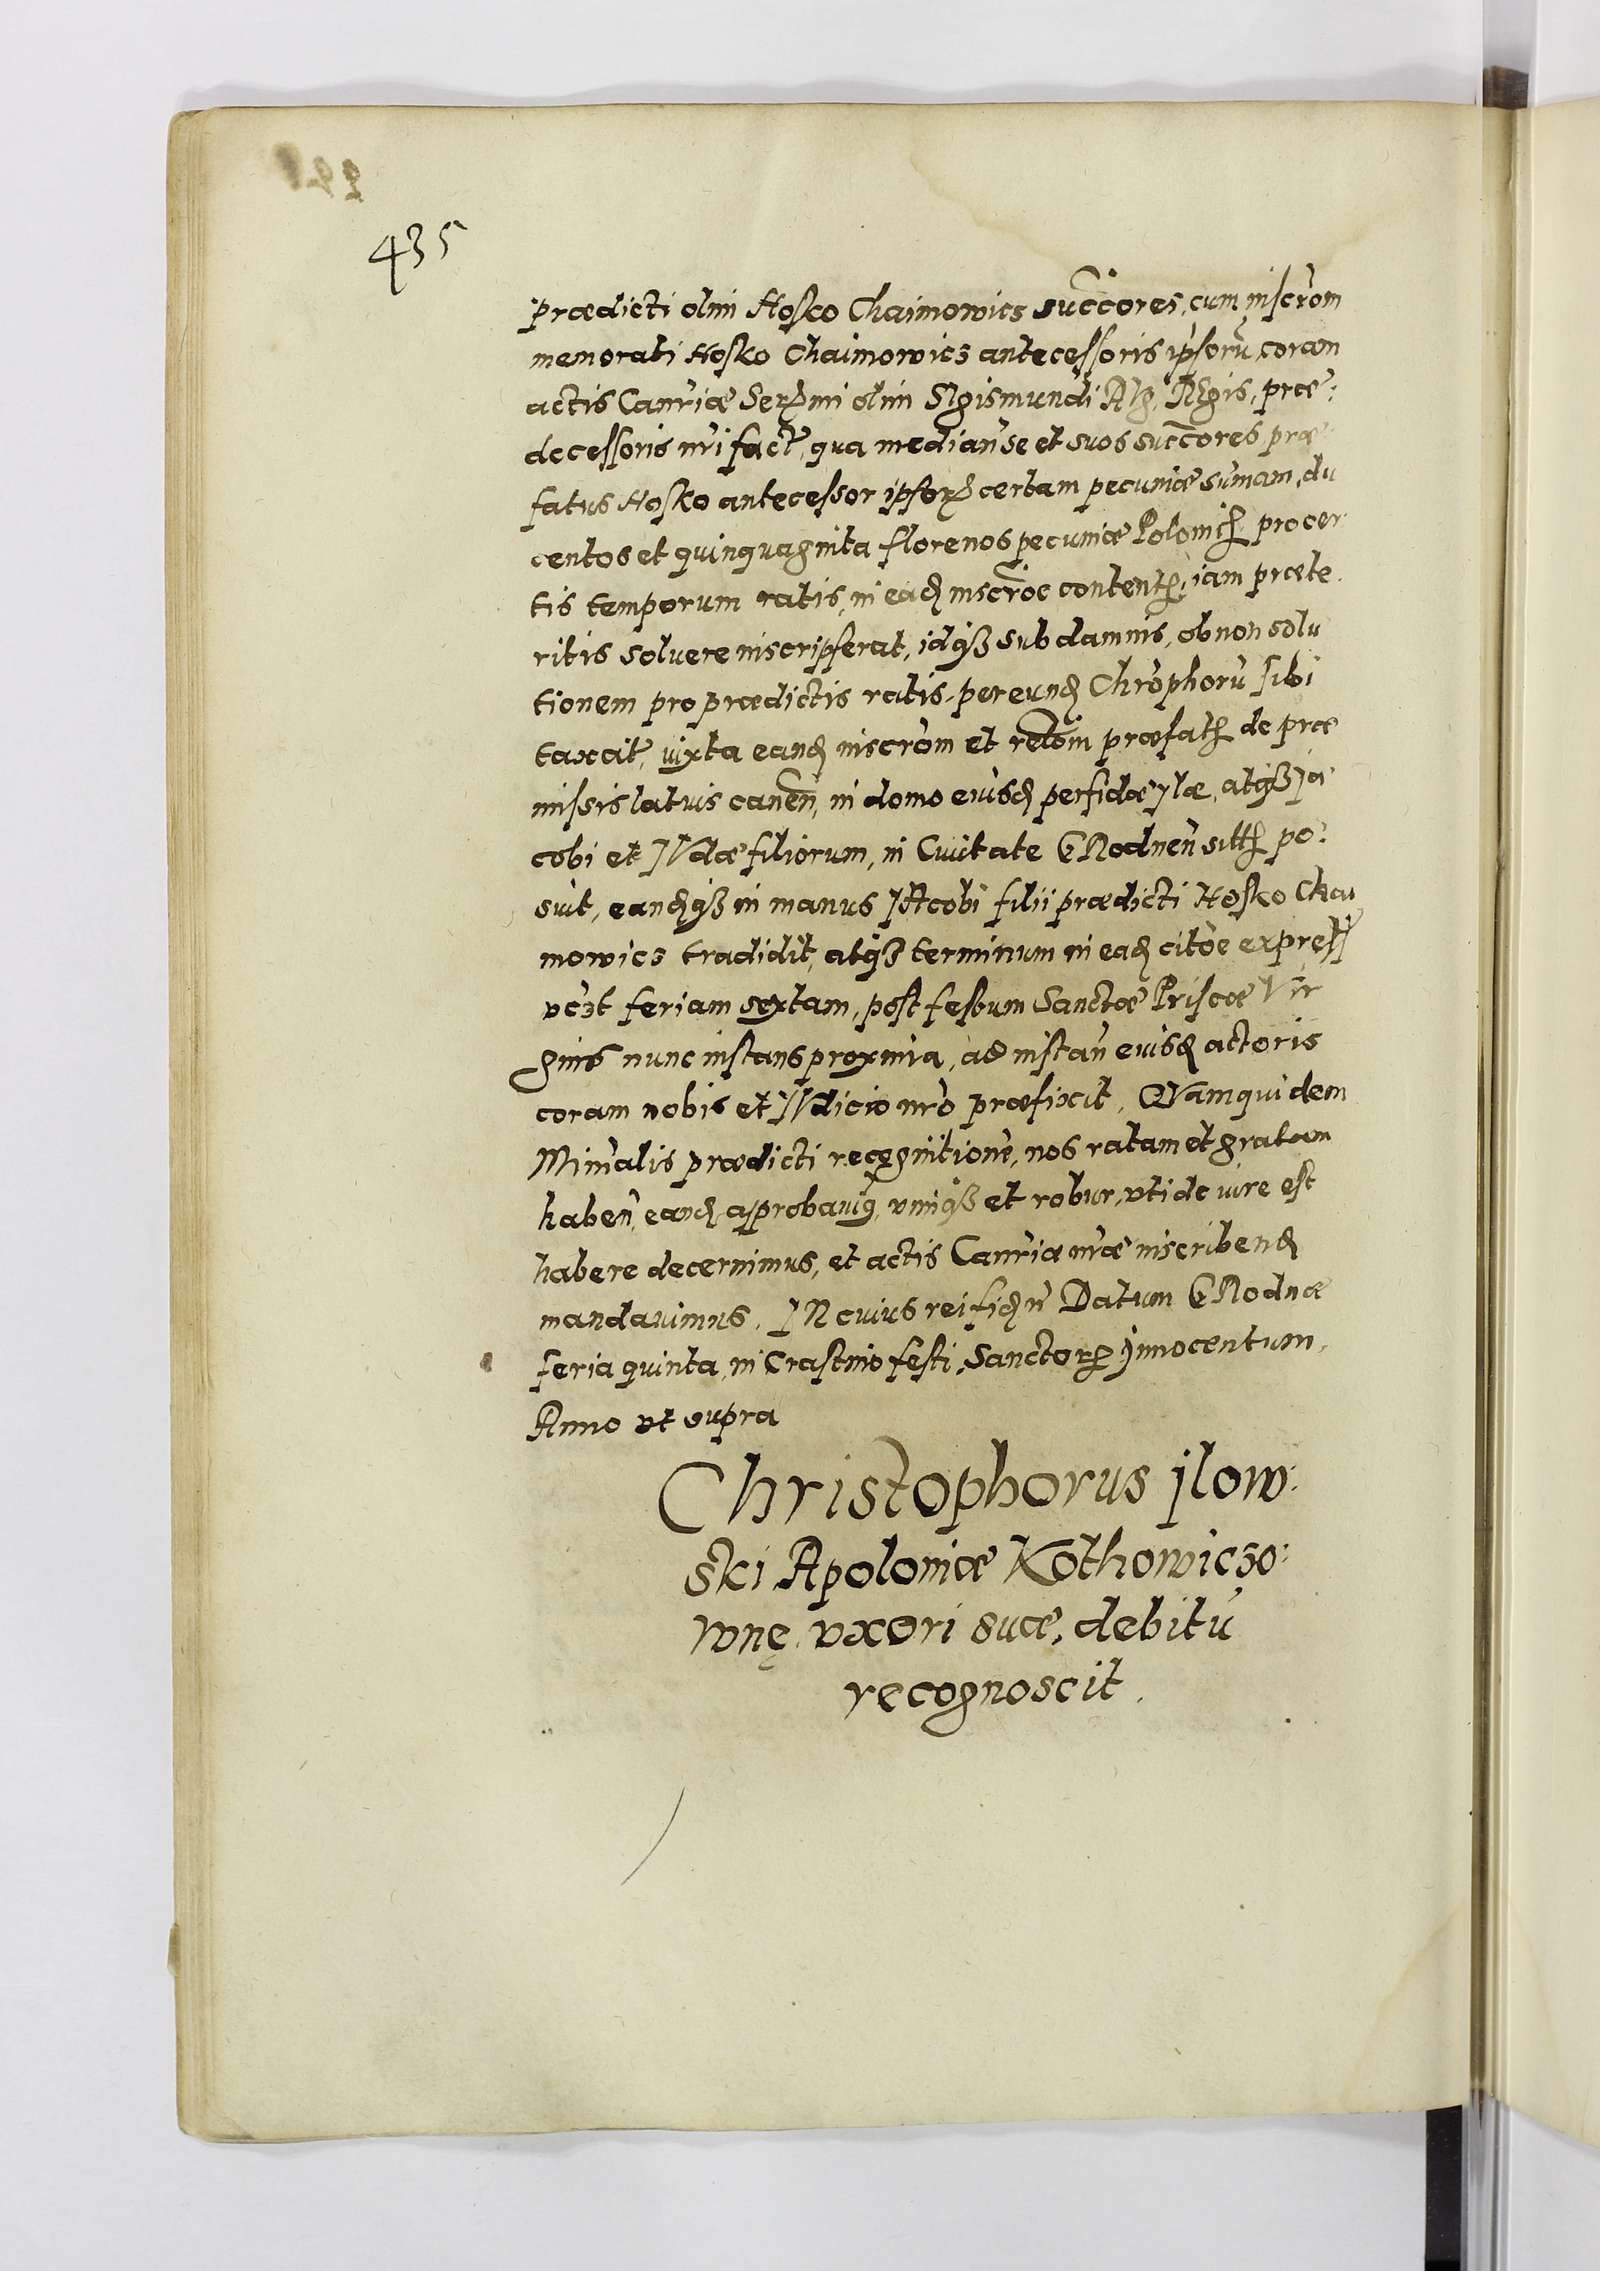 435
prædicti olim Hosko Chaimowicz succ̃ores, cum inscr̃om
memorati Hosko Chaimowicz antecessoris ipsorũ, coram
actis Canr̃iæ Ser̃mi olim SIgismundi Aug, REgis, præ:
decessoris nr̃i fact, qua median̄ se et suos succ̃ores, præ
fatus Hosko antecessor ipsorꝝ certam pecuniæ sum̃am, du
centos et quinquaginta florenos pecuniæ Polonicꝭ, pro cer
tis temporum ratis, in eadꝫ inscr̃oe contentꝭ, iam præte
ritis soluere inscripserat, idqꝫ sub damnis, ob non solu
tionem pro prædictis ratis, per eundꝫ Chr̃ophorũ sibi
taxat, iuxta eandꝫ inscr̃om et relõm præfatꝭ de præ
missis latius canen̄, in domo eiusdꝫ perfidæ ylæ, atqꝫ Ja
cobi et JVdæ filiorum, in Ciuitate GRodnen̄ sittꝭ po:
suit, eandꝫqꝫ in manus JAcobi filii prædicti Hosko Chai
mowicz tradidit, atqꝫ terminum in eadꝫ citõe express
vcꝫt feriam sextam, post festum Sanctæ Priscæ Vir
ginis nunc instans proxima, ad instan̄ eiusdꝫ actoris
coram nobis et JVdicio nr̃o præfixit. QVamquidem
Min̄alis prædicti recognitionẽ, nos ratam et gratam
haben̄, eandꝫ approbauimꝰ, vimqꝫ et robur, vti de iure est
habere decernimus, et actis Canr̃iæ nr̃æ inscribendꝫ
mandauimus. IN cuius rei fidꝫ n̄ Datum GRodnæ
feria quinta, in Crastino festi, Sanctorꝝ Jnnocentum,
Anno vt supra
Christophorus Jlow:
ski Apoloniæ Kothowiczo:
wnę, vxori suæ, debitũ
recognoscit.